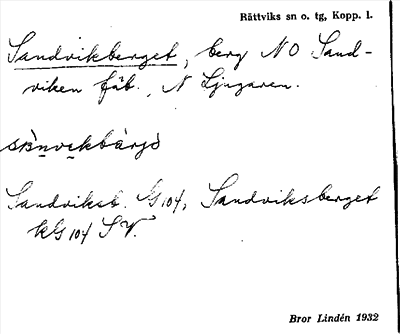 Rättviks sn o. tg, Kopp. l.
Sandvikberget, berg NO Sand-
viken fäb., N Ljugaren.
Sandviksb. G104, Sandviksberget
KlG 104 SV.
Bror Lindén 1932